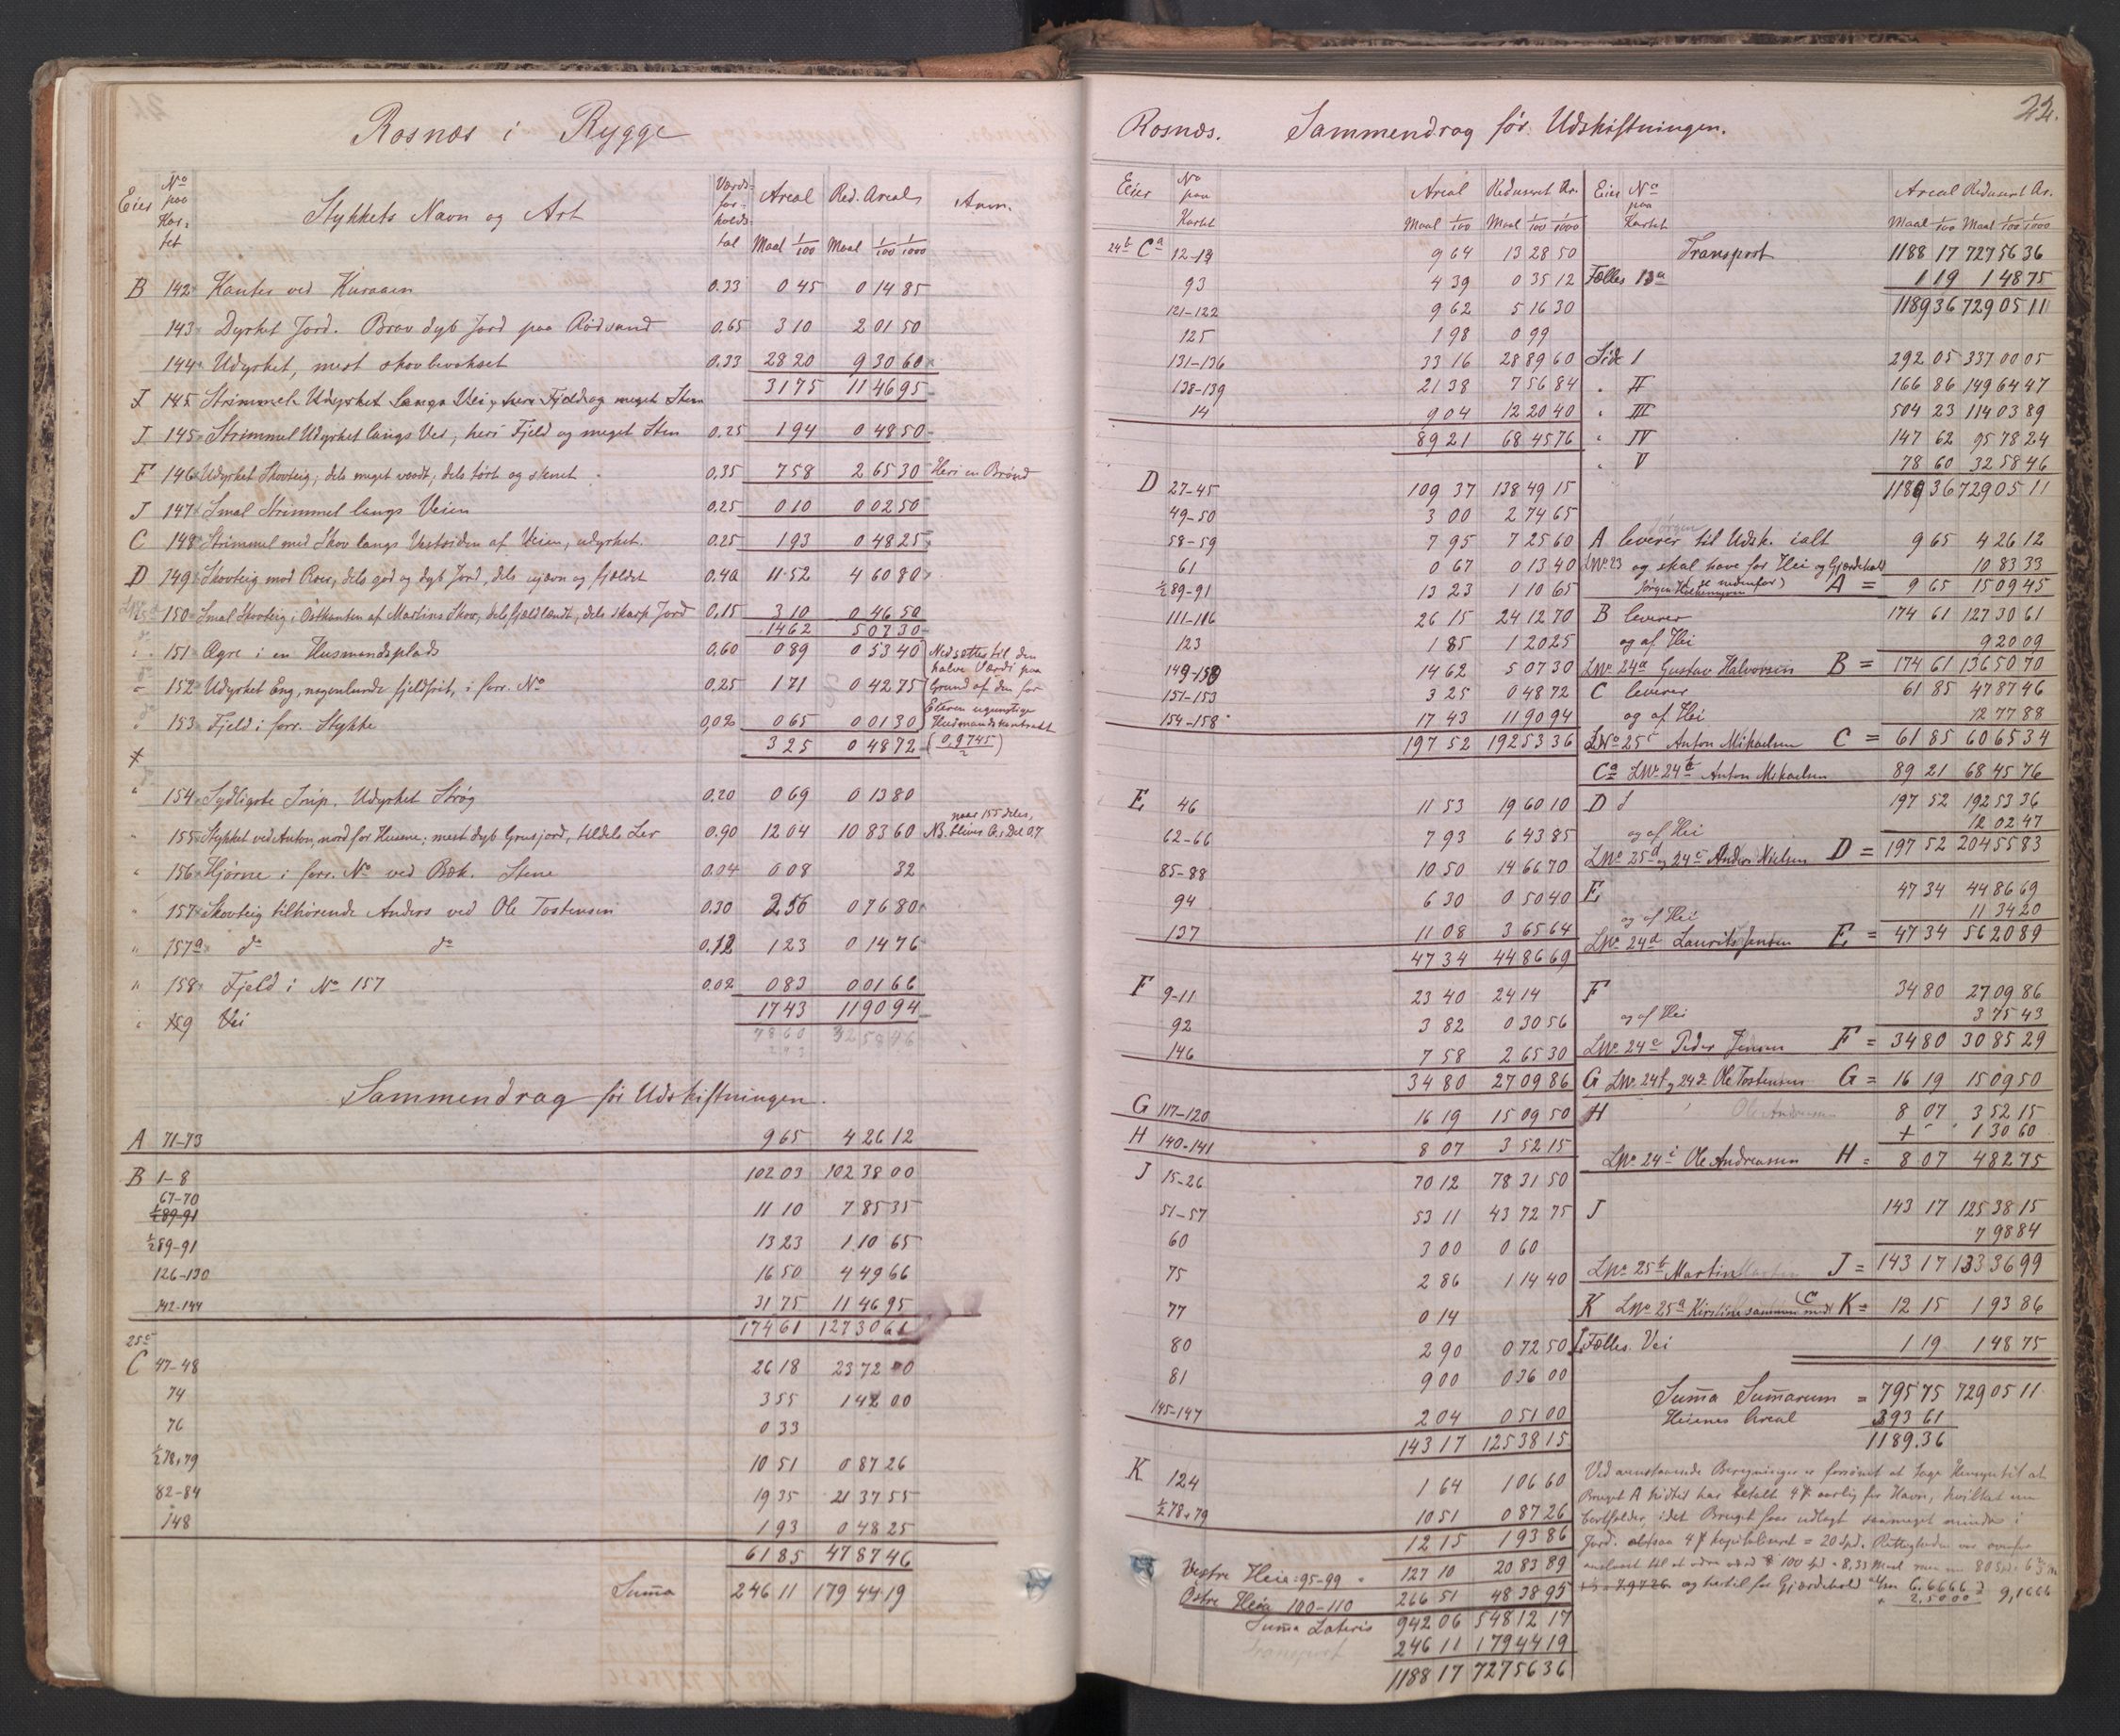 Rosnæs i Rygge
Eier No paa Kartet Stykkets Navn og Art Værdiforholdstal Areal Red. Areal Anm.
Maal 1/100 Maal 1/100 1/1000
B 142 Kanter ved Kuraaen 0.33 0 45 0 14 85
143 Dyrket Jord. Brav dyb Jord paa Rødsand 0,65 3 10 2 01 50
144 Udyrket, mest skovbevokset 0.33 28 20 9 30 60
31 75 11 46 95
I 145 Strimmel Udyrket langs Vei, heri Fjeld og meget Sten
J 145 Strimmel Udyrket langs Vei, heri Fjeld og meget Sten 0.25 1 94 0 48 50
F 146 Udyrket Skovteig, dels meget vaadt, dels tørt og stenet 0,35 7 58 2 65 30 Heri en Brønd
J 147 Smal Strimmel langs Veien 0,25 0 10 0 02 50
C 148 Strimmel med Skov langs Vestsiden af Veien, udyrket. 0.25 1 93 0 48 25
D 149 Skovteig mod Roer, dels god og dyb Jord, dels ujævn og fjeldet 0.40 11 52 4 60 80
150 Smal Skovteig i Østkanten af Martins Skov, dels fjeldlændt, dels skarp Jord 0,15 3 10 0 46 50
14 62 5 07 30
151 Agre i en Husmandsplads 0,60 0 89 0 53 40 Nedsættes til den
halve Værdi paa
152 Udyrket Eng, nogenlunde fjeldfrit, i forr. No 0,25 1 71 0 42 75 Grund af den for
Eieren ugunstige
153 Fjeld i forr. Stykke 0,02 0 65 0 01 30 Husmandskontrakt
3 25 0 48 72 (0,9745/2)
154 Sydligste Snip. Udyrket Strøg 0.20 0 69 0 13 80
naar 155 deles,
155 Stykket ved Anton, nord for Husene; mest dyb Grusjord, tildels Ler 0.90 12 04 10 83 60 NB. blives Ø.s Del 0.7
156 Hjørne i forr. No ved Bæk. Stene 0.04 0 08 32
157 Skovteig tilhørende Anders ved Ole Tostensen 0.30 2 56 0 76 80
157a do do 0.12 1 23 0 14 76
158 Fjeld i No 157 0.02 0 83 0 01 66
17 43 11 90 94
159 Vei
78 60 32 58 46
Sammendrag før Udskiftningen.
A 71-73 9 65 4 26 12
B 1-8 102 03 102 38 00
67-70 11 10 7 85 35
½89-91
½89-91 13 23 1 10 65
126-130 16 50 4 49 66
142-144 31 75 11 46 95
174 61 127 30 61
25c
C 47-48 26 18 23 72 00
74 3 55 1 42 00
76 0 33
½78,79 10 51 0 87 26
82-84 19 35 21 37 55
148 1 93 0 48 25
61 85 47 87 46
Summa 246 11 179 44 19
22.
Rosnæs. Sammendrag før Udskiftningen.
Eier No paa Kartet Areal Reduseret Ar.
Maal 1/100 Maal 1/100 1/1000
24b Ca 12-13 9 64 13 28 50
93 4 39 0 35 12
121-122 9 62 5 16 30
125 1 98 0 99
131-136 33 16 28 89 60
138-139 21 38 7 56 84
14 9 04 12 20 40
89 21 68 45 76
D 27-45 109 37 138 49 15
49-50 3 00 2 74 65
58-59 7 95 7 25 60
61 0 67 0 13 40
½89-91 13 23 1 10 65
111-116 26 15 24 12 70
123 1 85 1 20 25
149-150 14 62 5 07 30
151-153 3 25 0 48 72
154-158 17 43 11 90 94
197 52 192 53 36
E 46 11 53 19 60 10
62-66 7 93 6 43 85
85-88 10 50 14 66 70
94 6 30 0 50 40
137 11 08 3 65 64
47 34 44 86 69
F 9-11 23 40 24 14
92 3 82 0 30 56
146 7 58 2 65 30
34 80 27 09 86
G 117-120 16 19 15 09 50
H 140-141 8 07 3 52 15
J 15-26 70 12 78 31 50
51-57 53 11 43 72 75
60 3 00 0 60
75 2 86 1 14 40
77 0 14
80 2 90 0 72 50
81 9 00 0 36 00
145-147 2 04 0 51 00
143 17 125 38 15
K 124 1 64 1 06 60
½78,79 10 51 0 87 26
12 15 1 93 86
Vestre Heia: 95-99 127 10 20 83 89
Østre Heia 100-110 266 51 48 38 95
Summa Lateris 942 06 548 12 17
Transport 246 11 179 44 19
1188 17 727 56 36
Eier No paa Kartet Areal Reduseret Ar.
Maal 1/100 Maal 1/100 1/1000
Transport 1188 17 727 56 36
Fælles 13a 1 19 1 48 75
1189 36 729 05 11
Side I 292 05 337 00 05
" II 166 86 149 64 47
" III 504 23 114 03 89
" IV 147 62 95 78 24
" V 78 60 32 58 46
1189 36 729 05 11
Jørgen
A leverer til Udsk. ialt 9 65 4 26 12
LNo 23 og skal have for Hei og Gjærdehold 10 83 33
(se nedenfor) A = 9 65 15 09 45
B leverer 174 61 127 30 61
og af Hei 9 20 09
LNo 24a Gustav Halvorsen B = 174 61 136 50 70
C leverer 61 85 47 87 46
og af Hei 12 77 88
LNo 25c Anton Mikaelsen C = 61 85 60 65 34
Ca LNo 24b Anton Mikaelsen 89 21 68 45 76
D 197 52 192 53 36
og af Hei 12 02 47
LNo 25d og 24c Anders Nielsen D = 197 52 204 55 83
E 47 34 44 86 69
og af Hei 11 34 20
LNo 24d Laurits Jensen E = 47 34 56 20 89
F 34 80 27 09 86
og af Hei 3 75 43
LNo 24e Peder Jensen F = 34 80 30 85 29
G LNo 24f, 24g Ole Tostensen G = 16 19 15 09 50
H Ole Andreassen 8 07 3 52 15
+ 1 30 60
LNo 24i Ole Andreassen H = 8 07 4 82 75
J 143 17 125 38 15
7 98 84
LNo 25b Martin J = 143 17 133 36 99
K LNo 25a Kirstine sammen med C K = 12 15 1 93 86
Fælles Vei 1 19 1 48 75
Summa Summarum = 795 75 729 05 11
Heienes Areal 393 61
1189.36
Ved ovenstaaende Beregninger er forsømt at tage Hensyn til at
Bruget A hidtil har betalt 4 aarlig for Havn, hvilket nu
bortfalder, idet Bruget faar udlagt saameget mindre i
Jord. altsaa 4 kapitaliseret = 20 Spd. Rettigheden var ovenfor
anslaaet til at være værd 100 Spd = 8,33 Maal
7.9726 og hertil for Gjærdehold 6,6666
+ 2,5000 = 9,1666